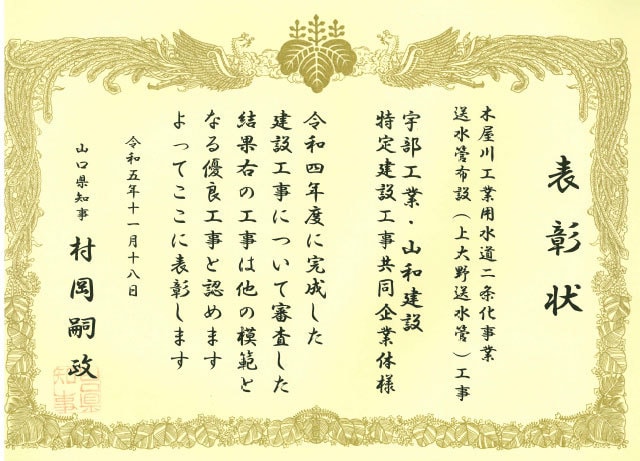 表彰状
木屋川工業用水道二条化事業
送水管布設(上大野送水管)工事
宇部工業・山和建設
特定建設工事共同企業体様
令和四年度に完成した
建設工事について審査した
結果右の工事は他の模範と
なる優良工事と認めます
よってここに表彰します
令和五年十一月十八日
山口県知事 村岡嗣政